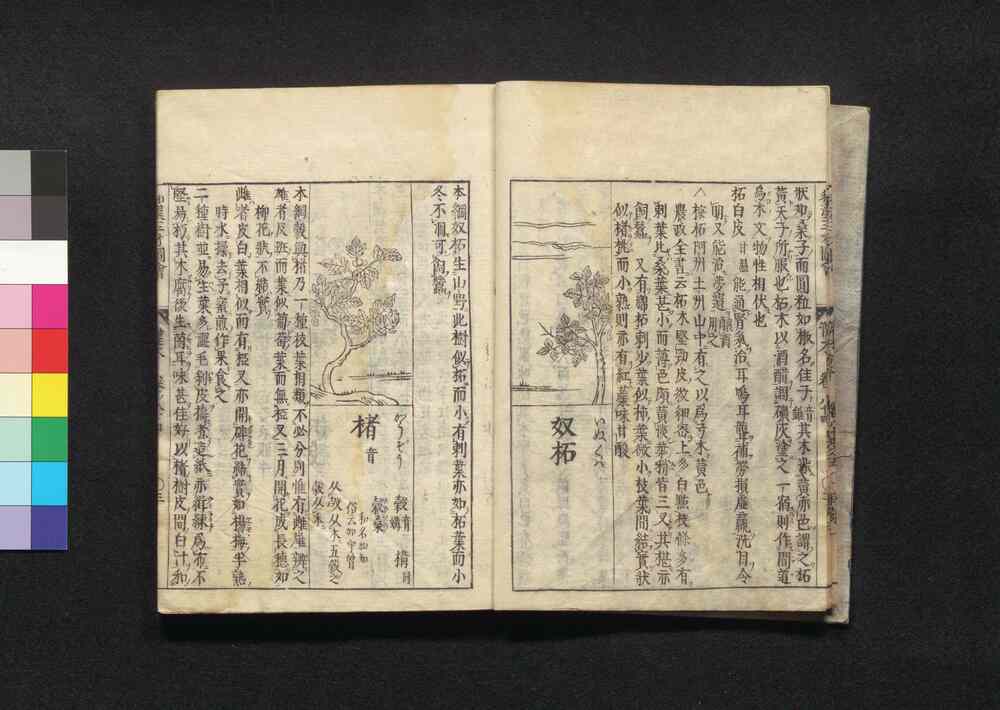 狀如桑子而圓粒如椒名佳子其木染黃赤色謂之柘
黃天子所服也柘木以酒醋調礦灰塗之一宿則作間道
烏木文物性相伏也
柘白皮甘溫能通腎氣治耳鳴耳聾補勞損虛羸洗目令
明又能治夢遺
△按柘阿州土州山中有之以爲弓木黃色
農政全書云柘木堅勁皮紋細密上多白點枝條多有
刺葉比桑葉甚小而薄色頗黃淡葉稍皆三叉其椹亦
飼蠶 又有綿柘刺少葉似柿葉微小枝葉間結實狀
似楮桃而小熟則亦有紅蘂味甘酸
奴柘
本綱奴柘生山野此樹似柘而小有刺葉亦如柘葉而小
冬不凋可飼蠶
楮音
かうぞう
穀
穀桑
從木
本綱穀血楮乃一種 枝葉相類不必分別惟有雌雄辨之
雄者皮斑而葉似葡萄葉而無椏叉三月開花成長穗如
柳花狀不結實
雌者皮白葉相似而有椏叉亦開碎花結實如楊梅半熟
時水操去子蜜煎作果食之
二種樹竝易生葉多澀毛剝皮擣煮造紙亦緝練爲布不
堅易朽其木腐後生菌耳味甚佳好以楮樹皮間白汁和